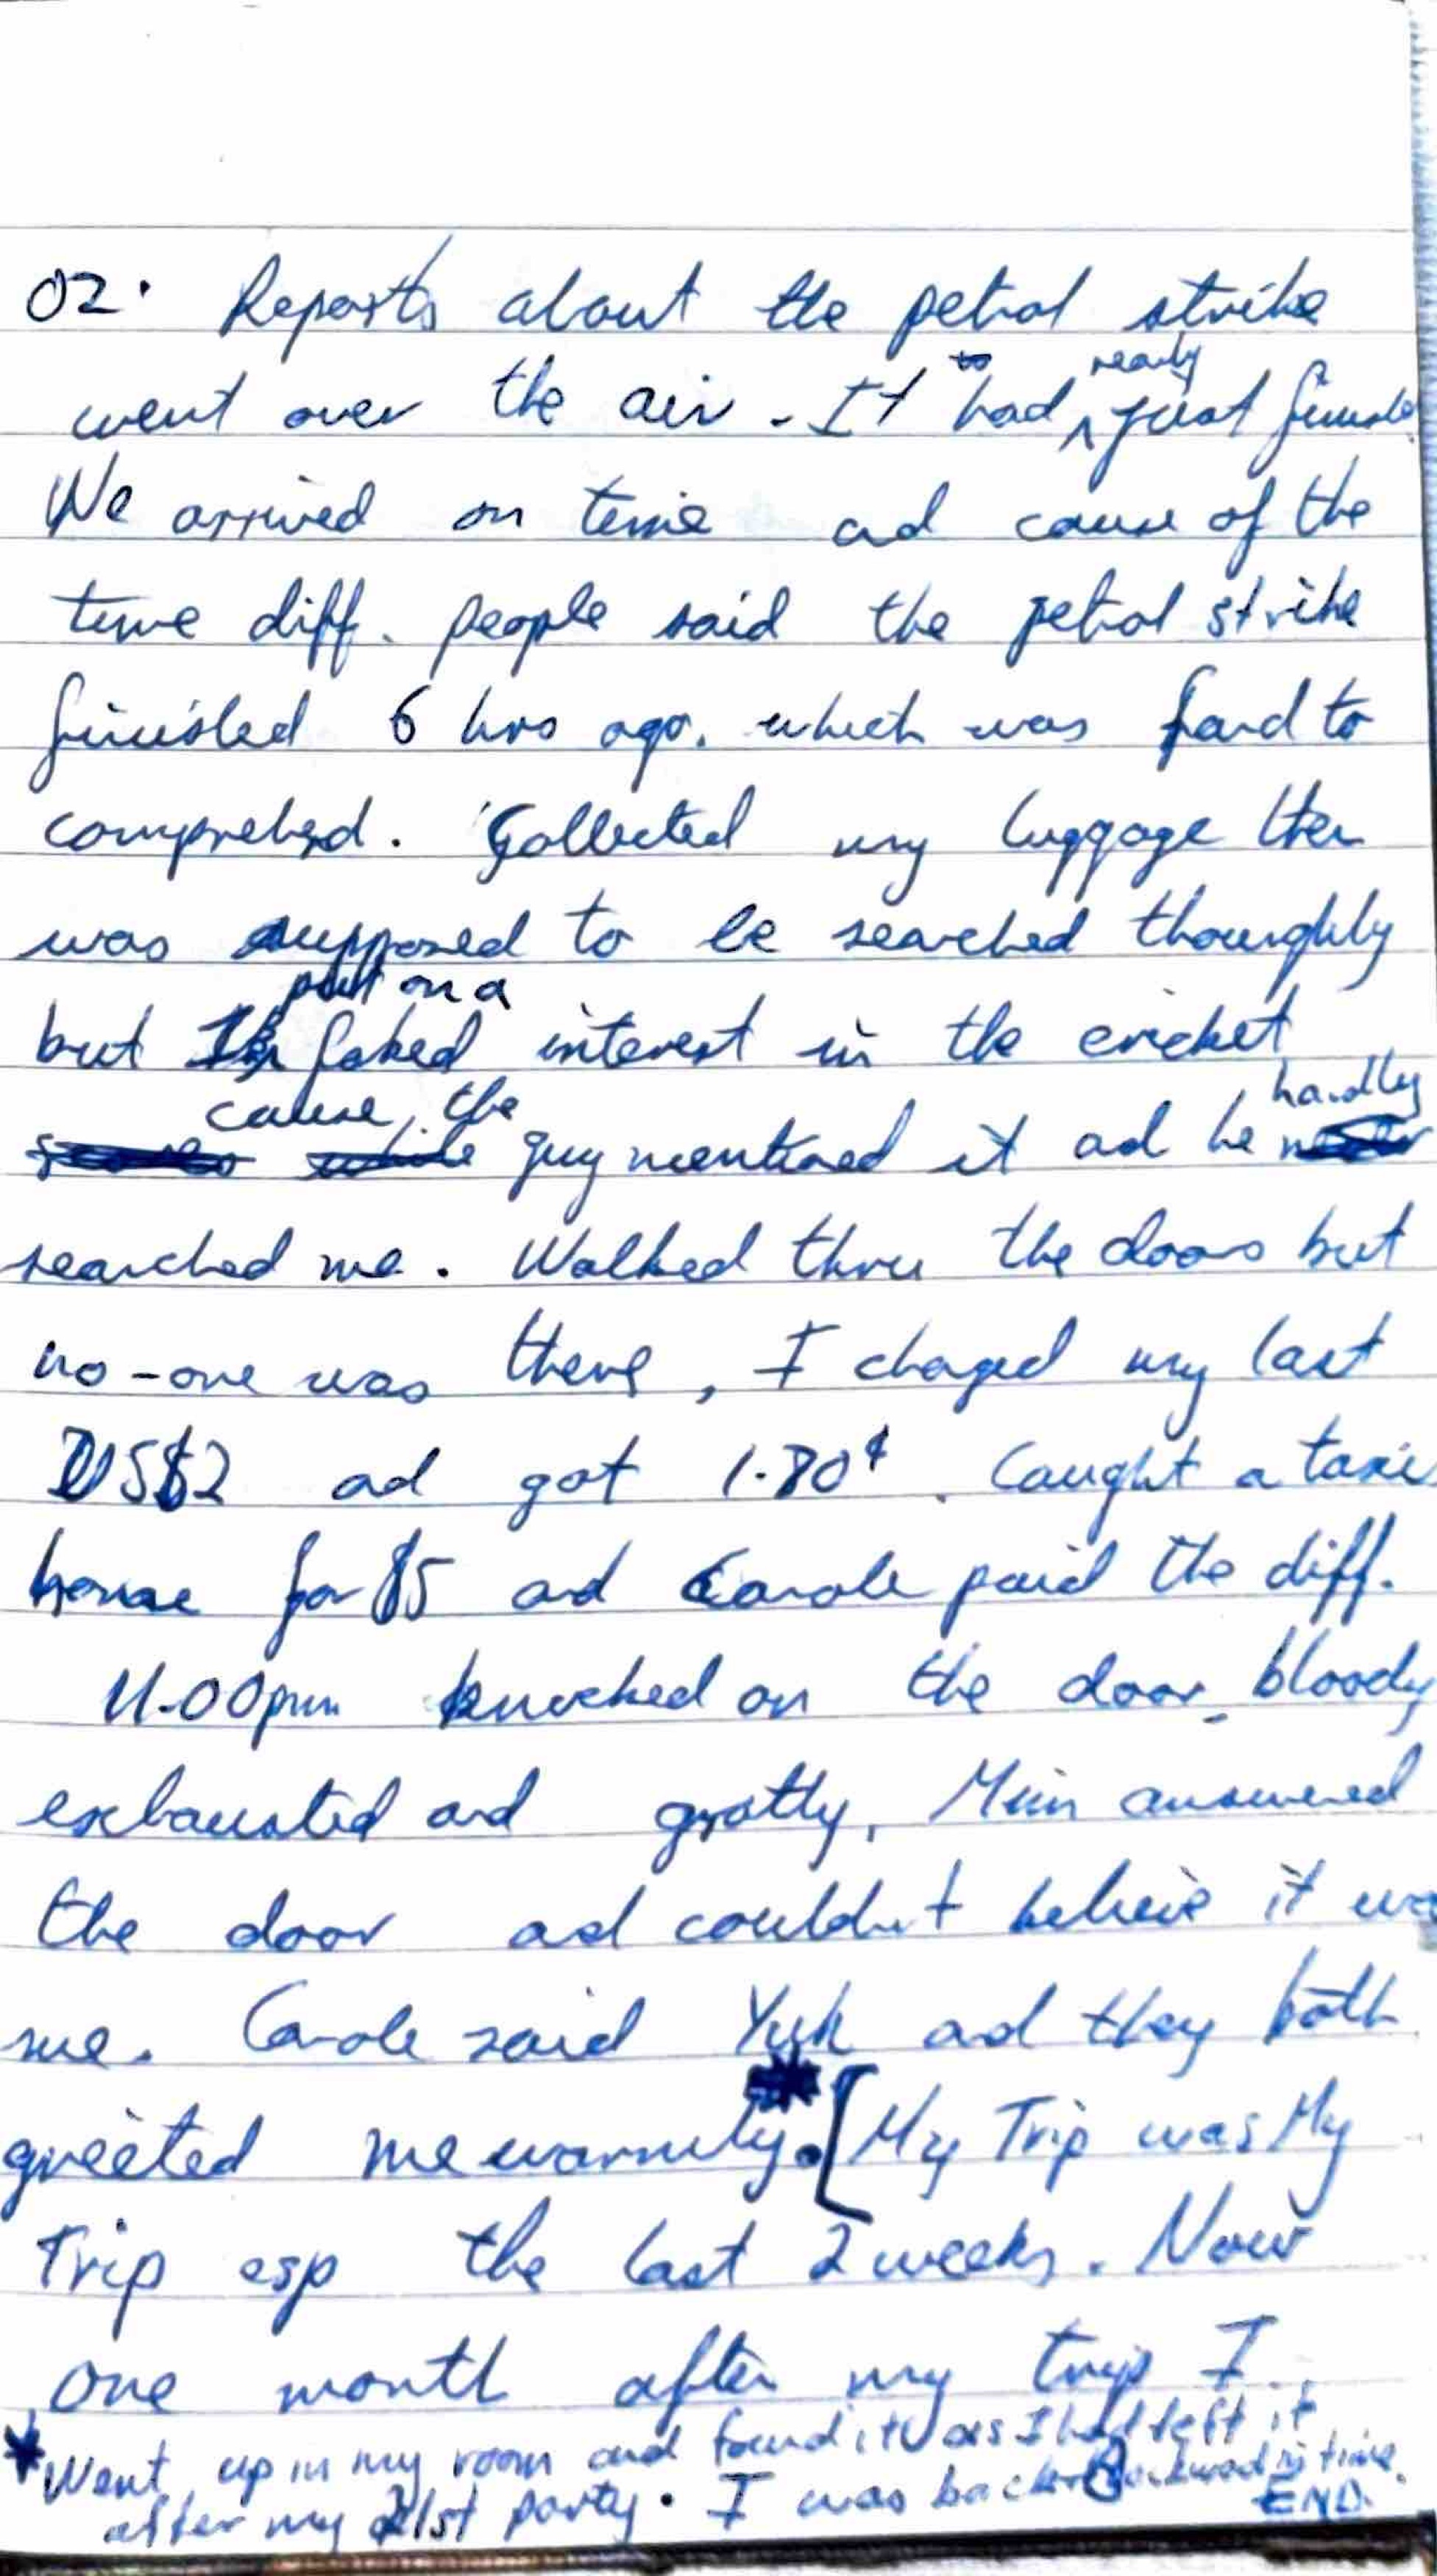 02. Reports about the petrol strike
went over the air. It had ready just
We arrived on time ad cause of the
time diff. people said the petrol strike
finished 6 hrs ago. which was hard to
comprehend. Collected my luggage then
was supposed to be searched thoughly
put on a
but I faked interest in the cricket
cause the hardly
guy mentioned it ad he
searched me. Walked thru the doors but
no-one was there, I chaged my last
US$2 ad got 1.80¢. Caught a taxi
home for $5 ad Carole paid the diff.
11.00pm knocked on the door bloody
exhausted and grotty, Mim answered
the door ad couldn't believe it was
me. Carole said Yuk ad they both
greeted me warmly.* [My Trip was My
Trip esp the last 2 weeks. Now
one month after my trip I
*Went up in my room and found it as I had left it
after my 21st party. I was back backward in time.
END.